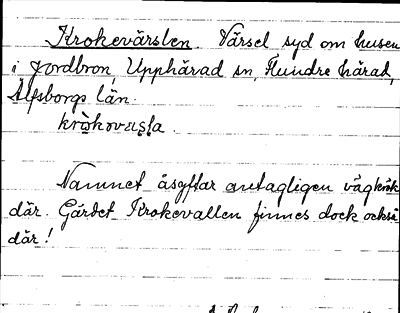 Krokevärslen. Värsel syd om husen
i Jordbron, Upphärad sn, Flundre härad,
Älfsborgs län.
kròkovas̩l̩a.
Namnet åsyftar antagligen vägkrök
där. Gärdet Krokevallen finnes dock också
där!